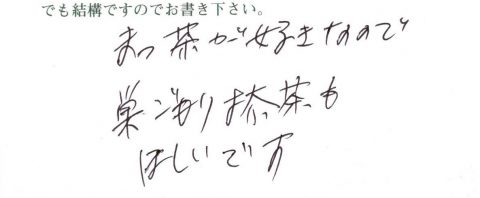 でも結構ですのでお書き下さい。
まっ茶が好きなので
巣ごもり抹茶も
ほしいです